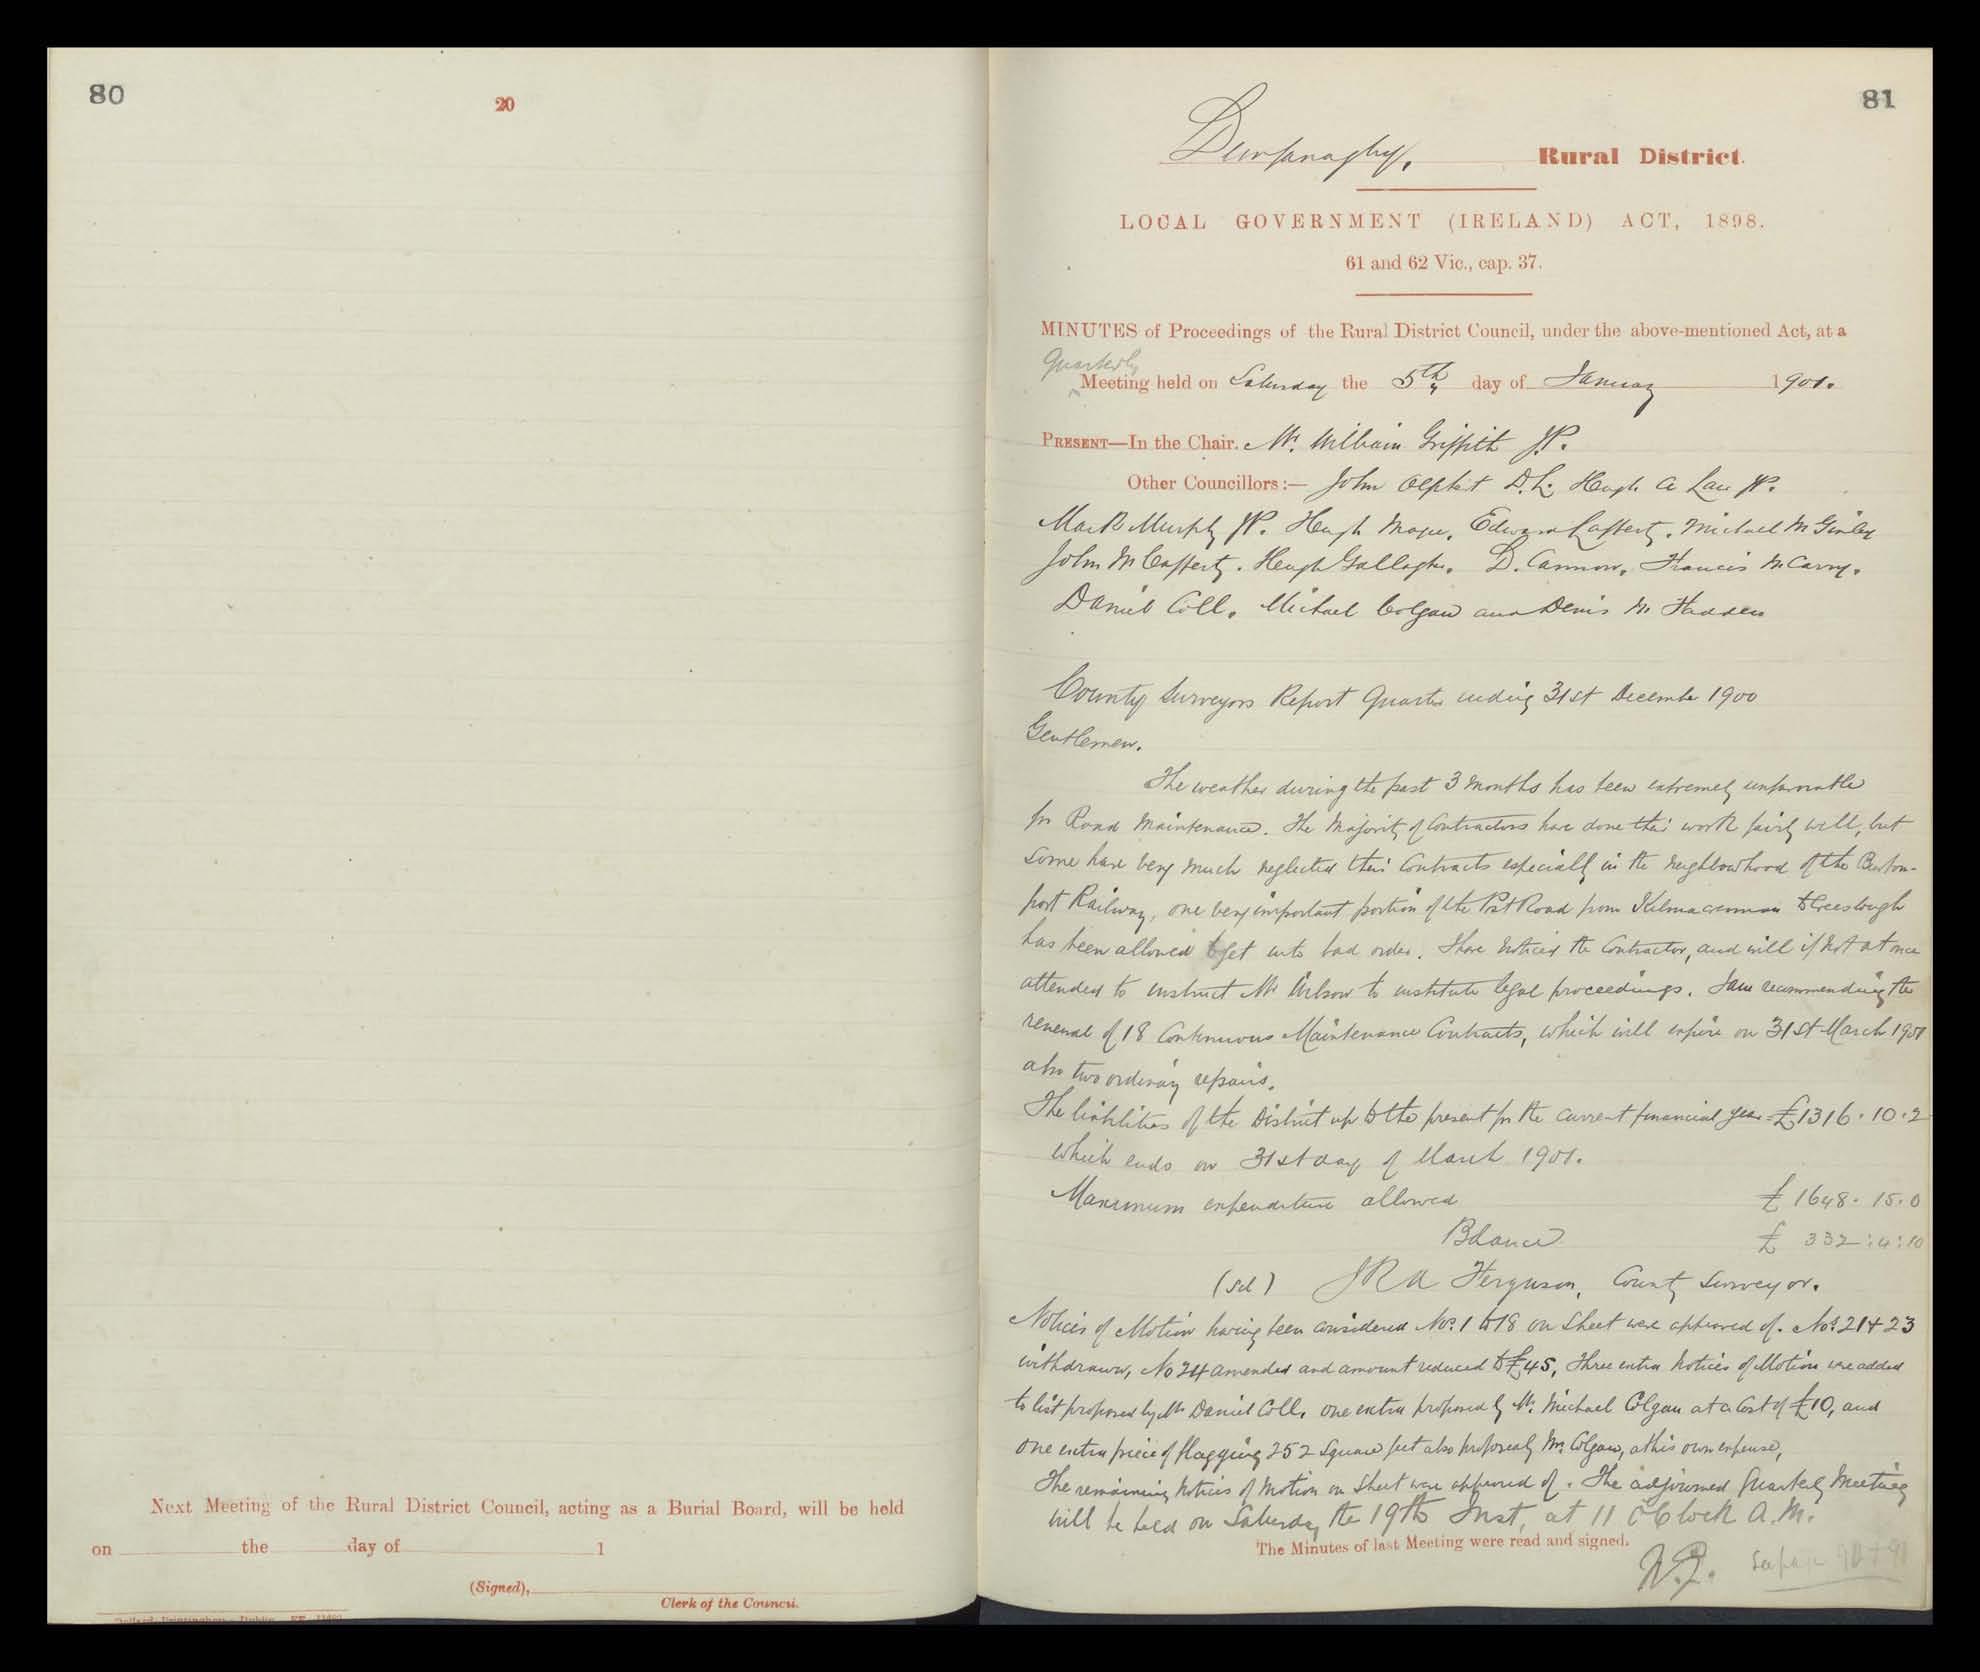 80
20
Next Meeting of the Rural District Council, acting as a Burial Board, will be held
on the day of 1
(Signed),
Clerk of the Council.
81
Dunfanaghy, Rural District.
LOCAL GOVERNMENT (IRELAND) ACT, 1898.
61 and 62 Vic., cap. 37.
MINUTES of Proceedings of the Rural District Council, under the above-mentioned Act, at a
Quarterly
Meeting held on Saturday the 5th day of January 1901.
PRESENT—In the Chair. Mr. William Griffith J.P.
Other Councillors:— John Olphert D.L. Hugh A Law JP.
Mark Murphy JP. Hugh Edward Lafferty. Michael McGinley
John McCafferty. Hugh Gallagher. D. Cannon. Francis McCarry.
Daniel Coll. Michael Colgan and Denis McFadden
County Surveyors Report Quarter ending 31st December 1900
Gentlemen.
The weather during the past 3 months has been extremely unfavourable
for Road Maintenance. The Majority of Contractors have done their work fairly well, but
some have very much neglected their Contracts especially in the neighbourhood of the Burton-
port Railway, one very important portion of the Post Road from Kilmacrennan to Creeslough
has been allowed to get into bad order. I have noticed the Contractor, and will if not at once
attended to instruct Mr Wilson to institute legal proceedings. I am recommending the
renewal of 18 Continuous Maintenance Contracts, which will expire on 31st March 1901
also two ordinary repairs.
The liabilities of the District up to the present for the current financial year = £1316.10.2
which ends on 31st day of March 1901.
Maximum expenditure allowed £ 1648. 15. 0
Balance £ 332 : 4 : 10
(sd) J R A Ferguson, County Surveyor.
Notices of Motion having been considered Nos. 1 to 18 on Sheet were approved of. Nos. 21 + 23
withdrawn, No 24 amended and amount reduced to £45, Three extra Notices of Motion were added
to list proposed by Mr Daniel Coll. one extra proposed by Mr. Michael Colgan at a Cost of £10, and
one extra piece of flagging 252 Square feet also proposed by Mr. Colgan, at his own expense,
The remaining Notices of Motion on Sheet were approved of. The adjourned Quarterly Meeting
will be held on Saturday the 19th Inst, at 11 O'Clock A.M.
The Minutes of last Meeting were read and signed.
W.G. See page 90 + 91